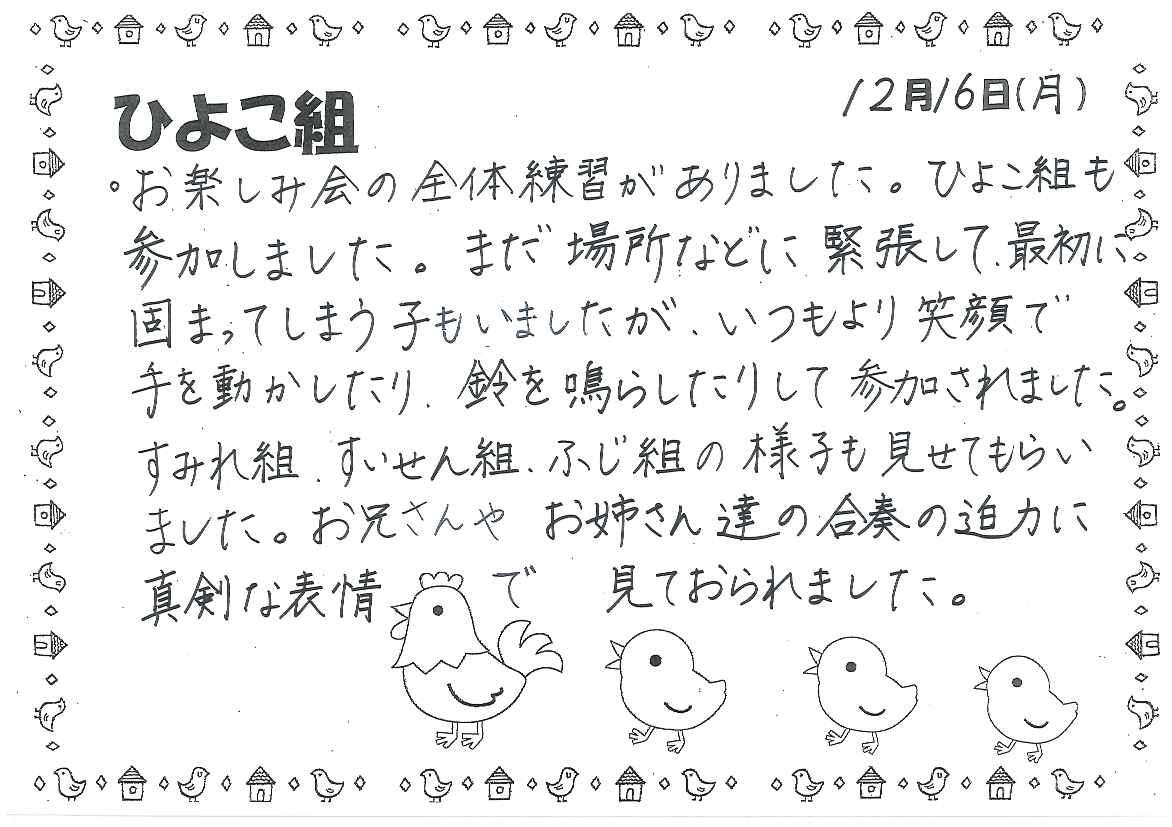 ひよこ組
12月16日(月)
。お楽しみ会の全体練習がありました。ひよこ組も
参加しました。まだ場所などに緊張して、最初に
固まってしまう子もいましたが、いつもより笑顔で
手を動かしたり、鈴を鳴らしたりして参加されました。
すみれ組、すいせん組、ふじ組の様子も見せてもらい
ました。お兄さんや お姉さん達の合奏の迫力に
真剣な表情で 見ておられました。